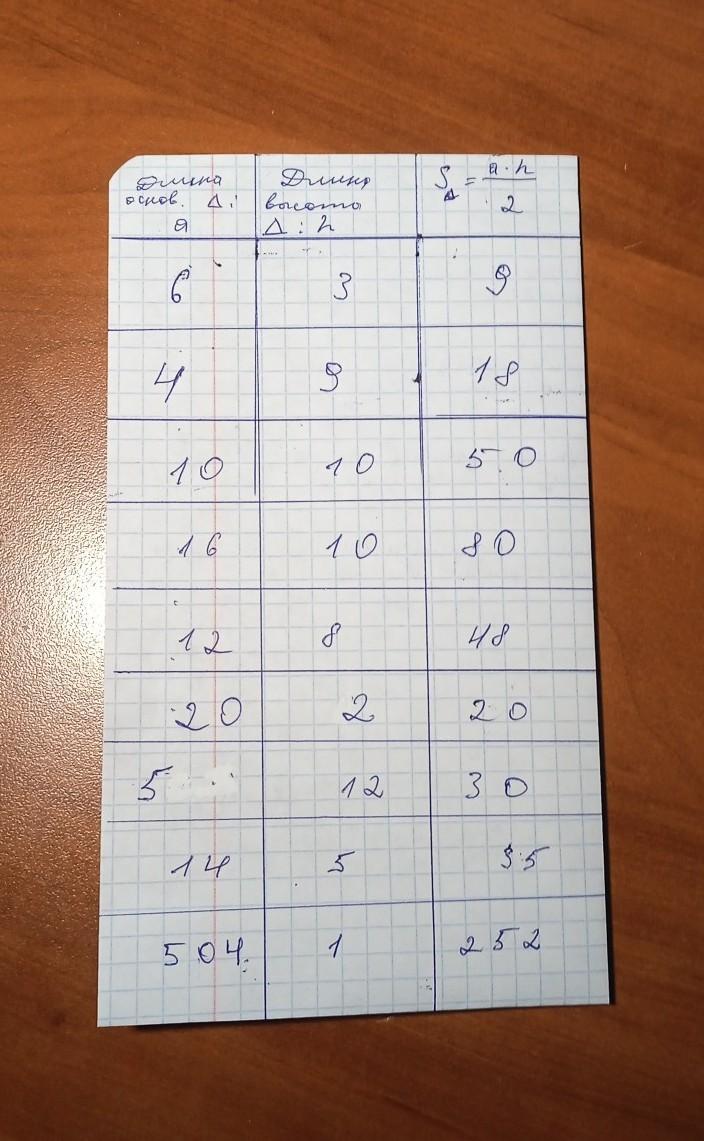 Длина основ. Δ: a
Длина высоты Δ: h
S Δ = a · h / 2
6 3 9
4 9 18
10 10 50
16 10 80
12 8 48
20 2 20
5 12 30
14 5 35
504 1 252